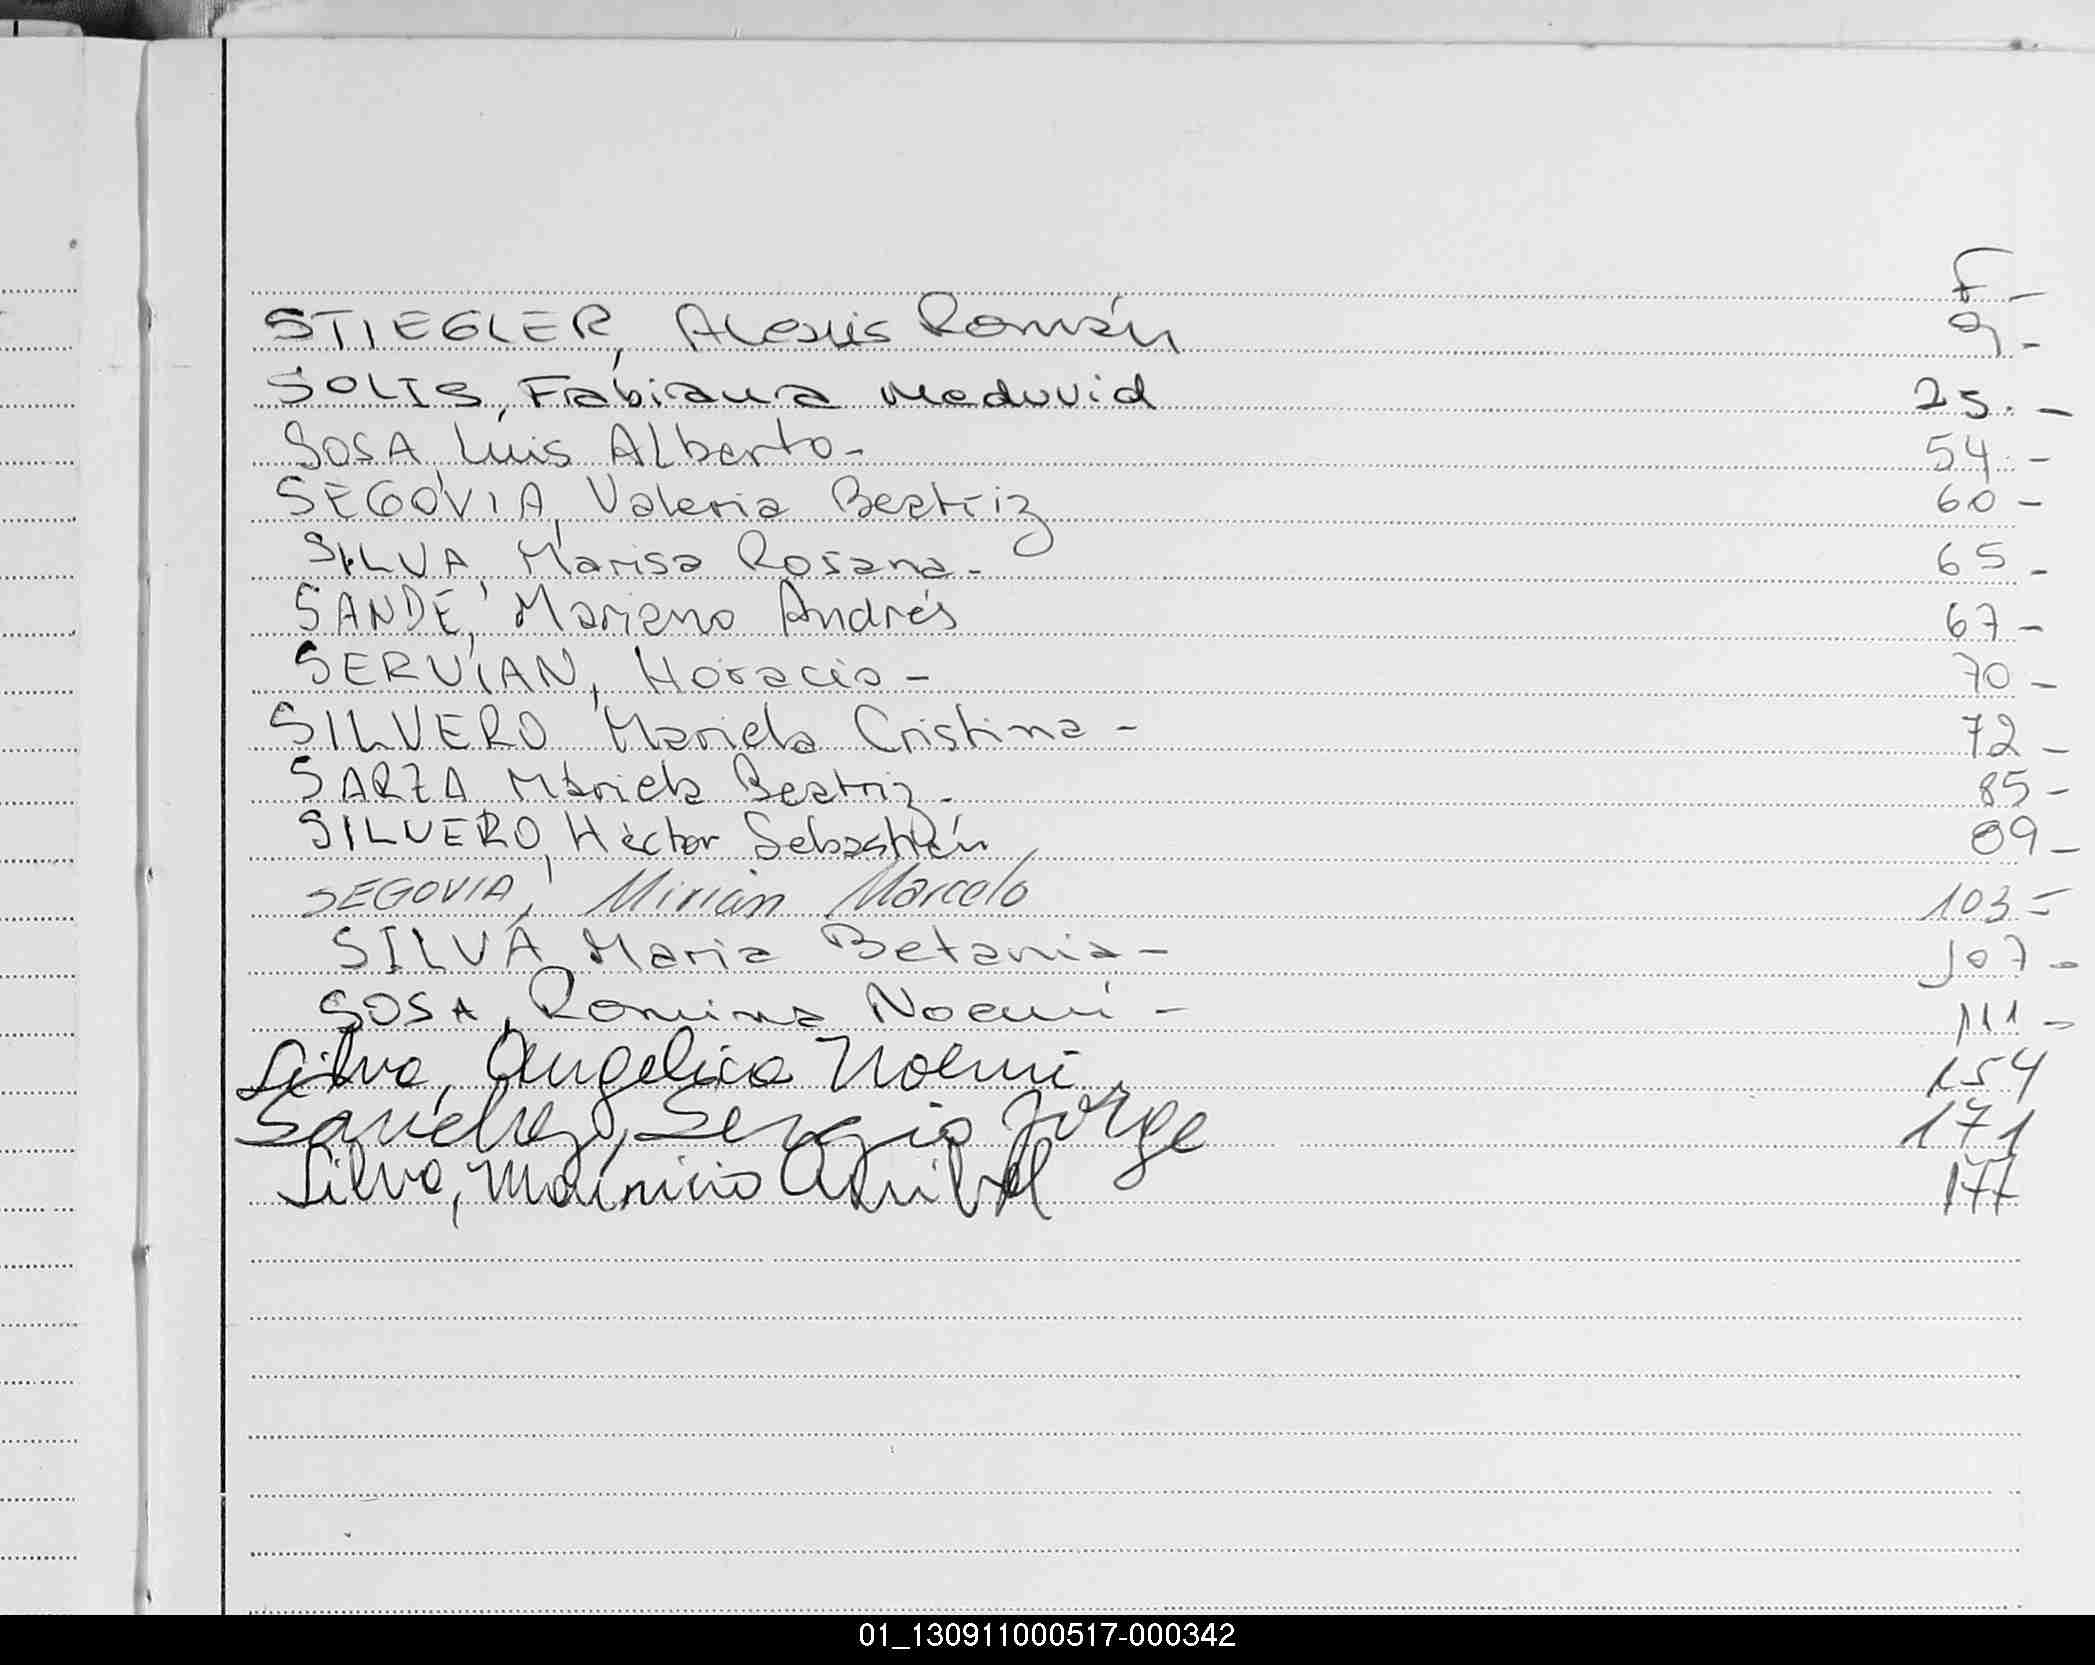 F-
STIEGLER, Alexis Román 9-
SOLIS, Fabiana 25.-
SOSA, Luis Alberto- 54.-
SEGOVIA, Valeria Beatriz 60-
SILVA, Marisa Rosana- 65-
SANDE, Mariano Andrés 67-
SERVIAN, Horacio- 70-
SILVERO Mariela Cristina- 72-
SARZA, Mariela Beatriz- 85-
SILVERO, Héctor Sebastián 89-
SEGOVIA, Mirian Marcelo 103-
SILVA, Maria Betania- 107-
SOSA, Romina Noemí- 111-
Silva, Angelica Noemi 154
Sanchez, Sergio Jorge 171
Silva, Mauricio Anibal 177
01_130911000517-000342